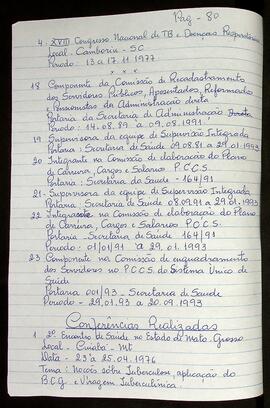 Pag - 80
4. XVIII Congresso Nacional de TB e Doenças Respiratórias
Local - Camboriu - SC
Período : 13 a 17.11.1977
x x x
18 Componente da Comissão de Recadastramento
dos Servidores Públicos, Aposentados, Reformados
e Pensionistas da Administração direta
Portaria da Secretaria de Administração
Período : 14.08.89 a 09.08.1991
19 Supervisora da equipe de Supervisão Integrada
Portaria : Secretaria de Saúde 09.08.91 a 29.01.1993
20 Integrante na Comissão de elaboração do Plano
de Carreira, Cargos e Salários P.C.C.S.
Portaria : Secretaria da Saúde - 164/91
21 - Supervisora da equipe de Supervisão Integrada
Portaria : Secretaria de Saúde 08.09.91 a 29.01.1993
22 Integrante na Comissão de elaboração do Plano
de Carreira, Cargos e Salários P.C.C.S.
Portaria - Secretaria de Saúde - 164/91
Período : 01/01/91 a 29.01.1993
23 Componente na Comissão de enquadramento
dos Servidores no P.C.C.S. do Sistema Único de
Saúde
Portaria 001/93 - Secretaria de Saúde
Período - 29.01.93 a 20.09.1993
Conferências Realizadas
1. 2º Encontro de Saúde no Estado de Mato - Grosso
Local - Cuiabá - Mt
Data - 23 a 25.04.1976
Tema : sobre Tuberculose, aplicação do
B.C.G. e Viragem Tuberculínica.